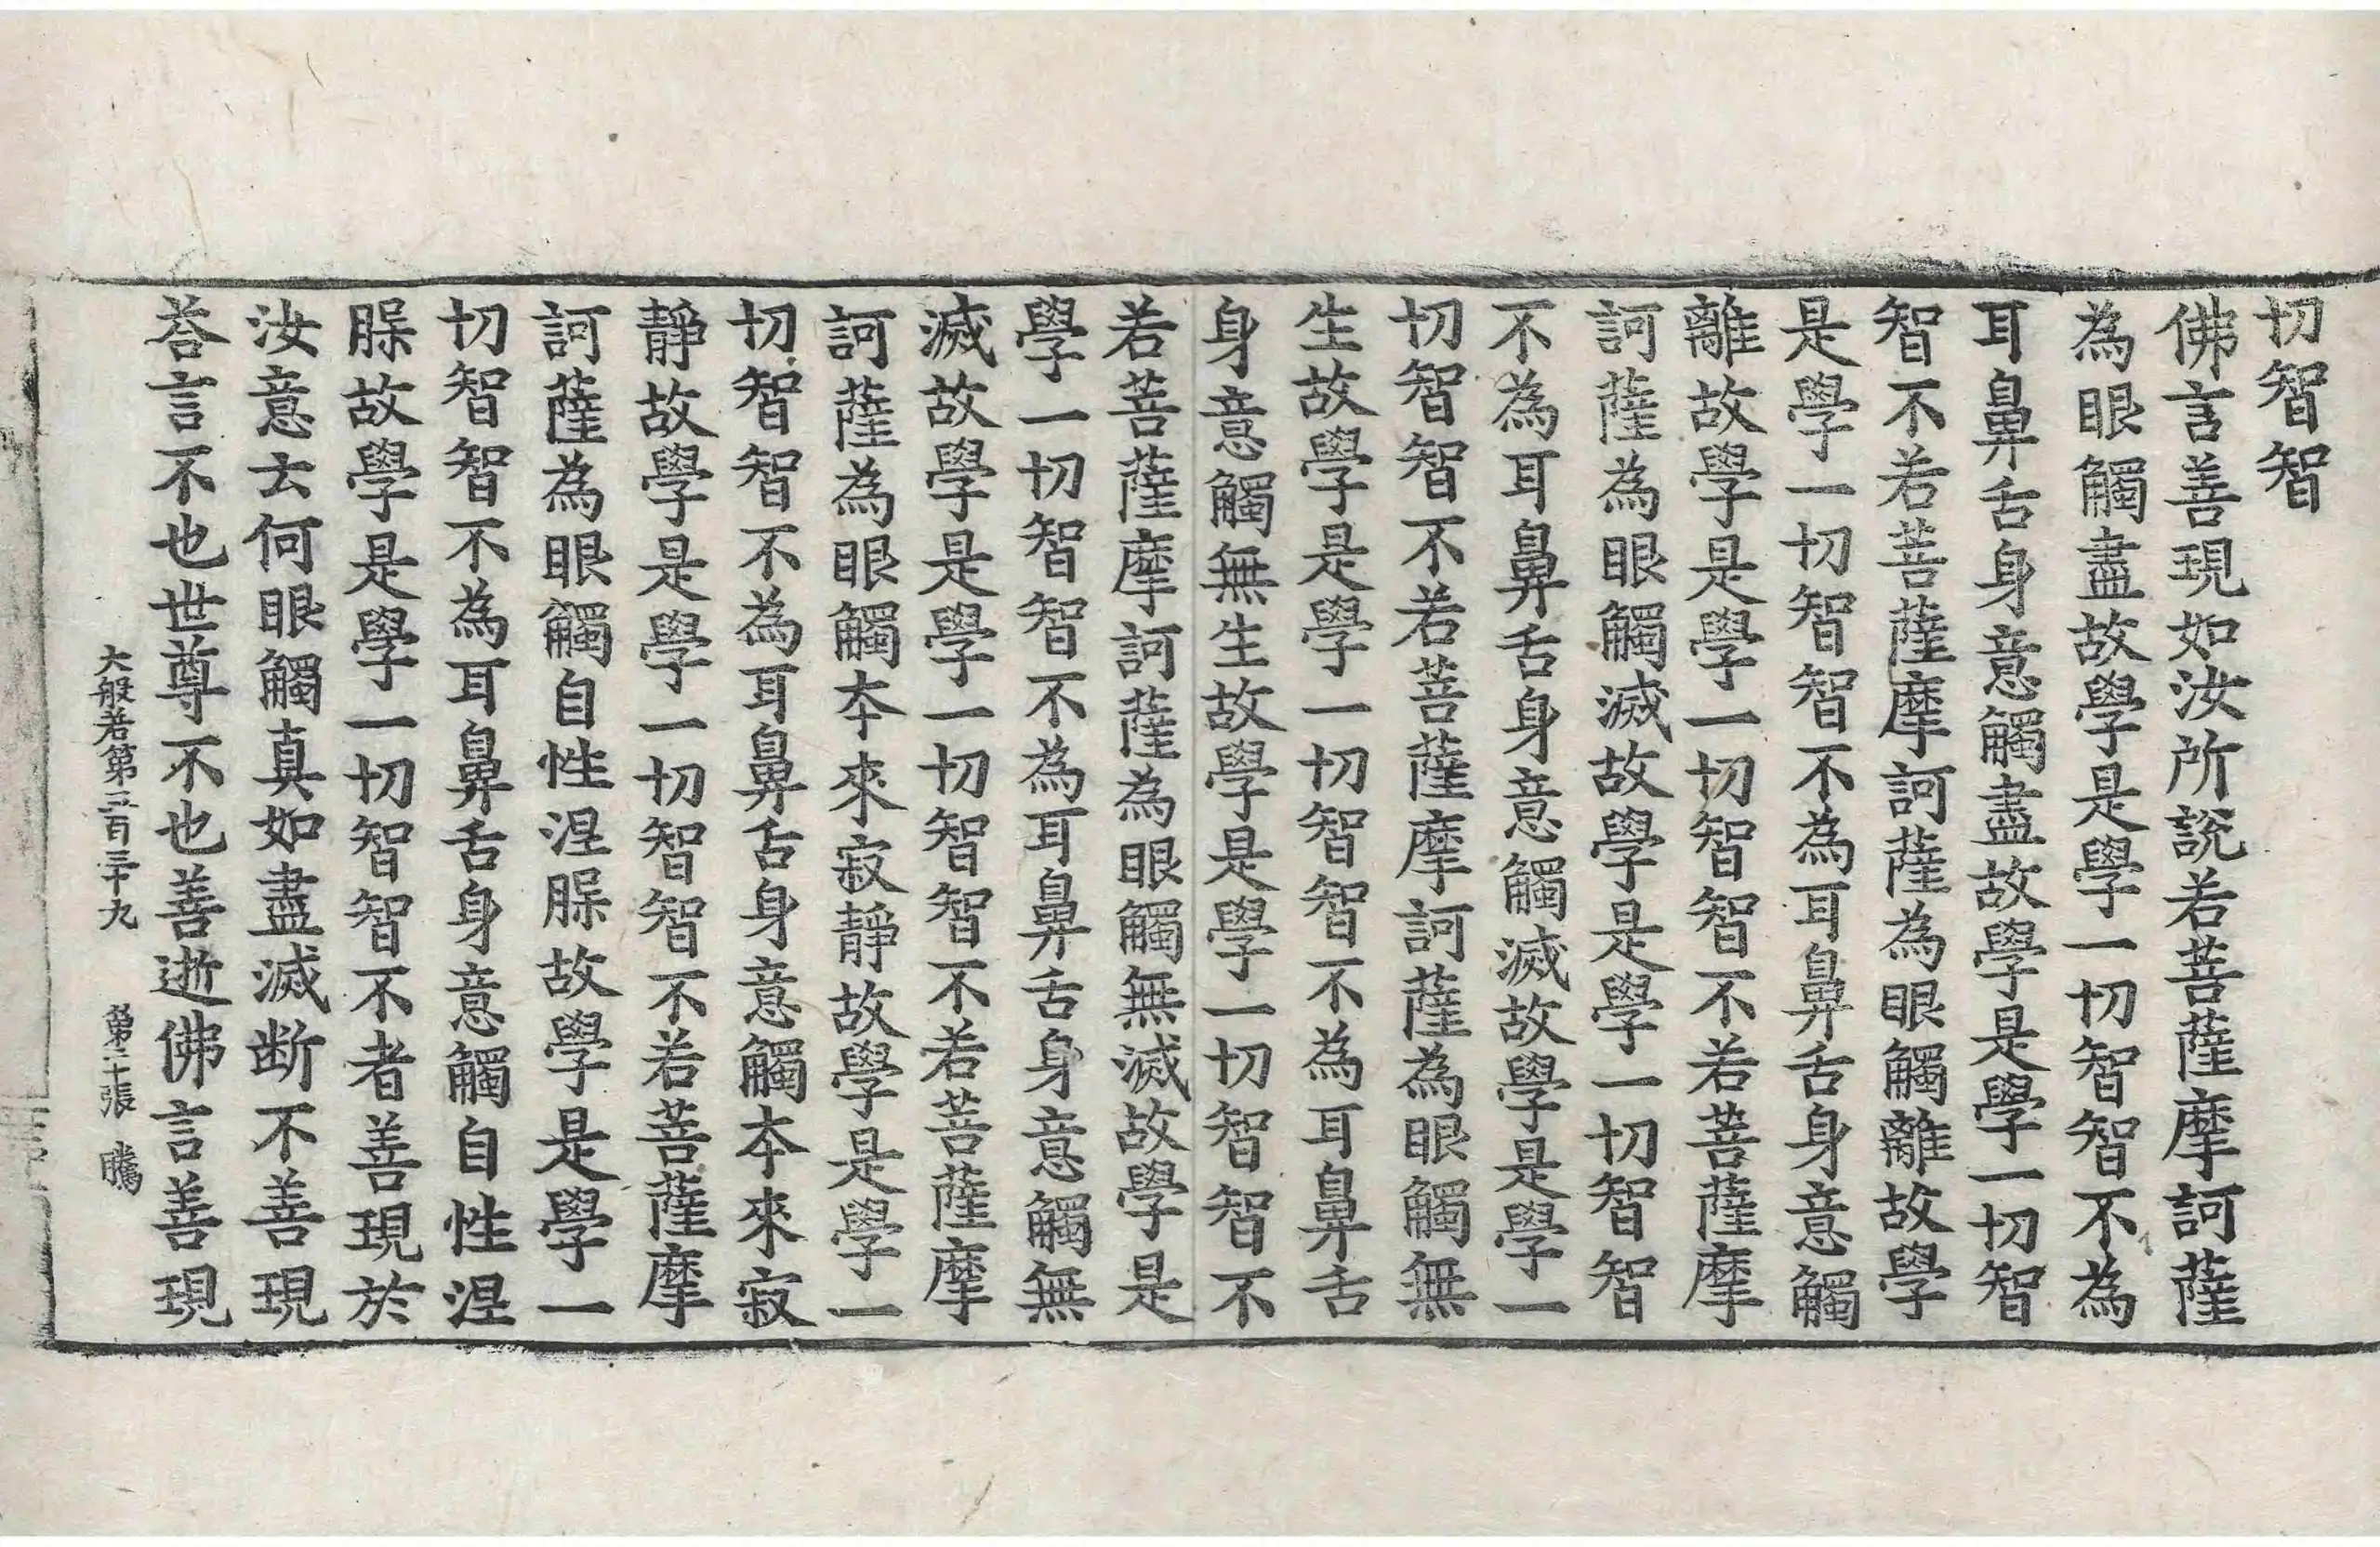 切智智
佛言善現如汝所說若菩薩摩訶薩
為眼觸盡故學是學一切智智不為
耳鼻舌身意觸盡故學是學一切智
智不若菩薩摩訶薩為眼觸離故學
是學一切智智不為耳鼻舌身意觸
離故學是學一切智智不若菩薩摩
訶薩為眼觸滅故學是學一切智智
不為耳鼻舌身意觸滅故學是學一
切智智不若菩薩摩訶薩為眼觸無
生故學是學一切智智不為耳鼻舌
身意觸無生故學是學一切智智不
若菩薩摩訶薩為眼觸無滅故學是
學一切智智不為耳鼻舌身意觸無
滅故學是學一切智智不若菩薩摩
訶薩為眼觸夲來寂靜故學是學一
切智智不為耳鼻舌身意觸夲來寂
靜故學是學一切智智不若菩薩摩
訶薩為眼觸自性涅脲故學是學一
切智智不為耳鼻舌身意觸自性涅
脲故學是學一切智智不者善現於
汝意云何眼觸真如盡滅断不善現
荅言不也世尊不也善逝佛言善現
大般若第三百三十九 第二十張 騰